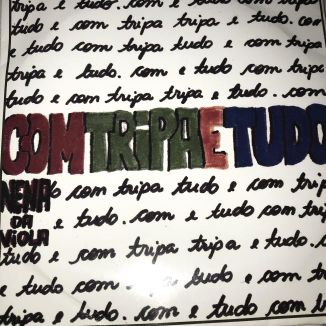 tripa e tudo. com com tripa
tudo e com tripa tripa e tudo. com
e tudo com tripa tudo e com tripa
tripa e tudo. com e tudo com tripa
tudo e com tripa tripa e tudo. com
COM TRIPA E TUDO
NENA DA VIOLA
com tripa tudo e com tripa
e tudo. com e tudo com tripa
tudo e com tripa tripa e tudo. c
e tudo com tripa tudo e com t
tripa e tudo. com e tudo com t